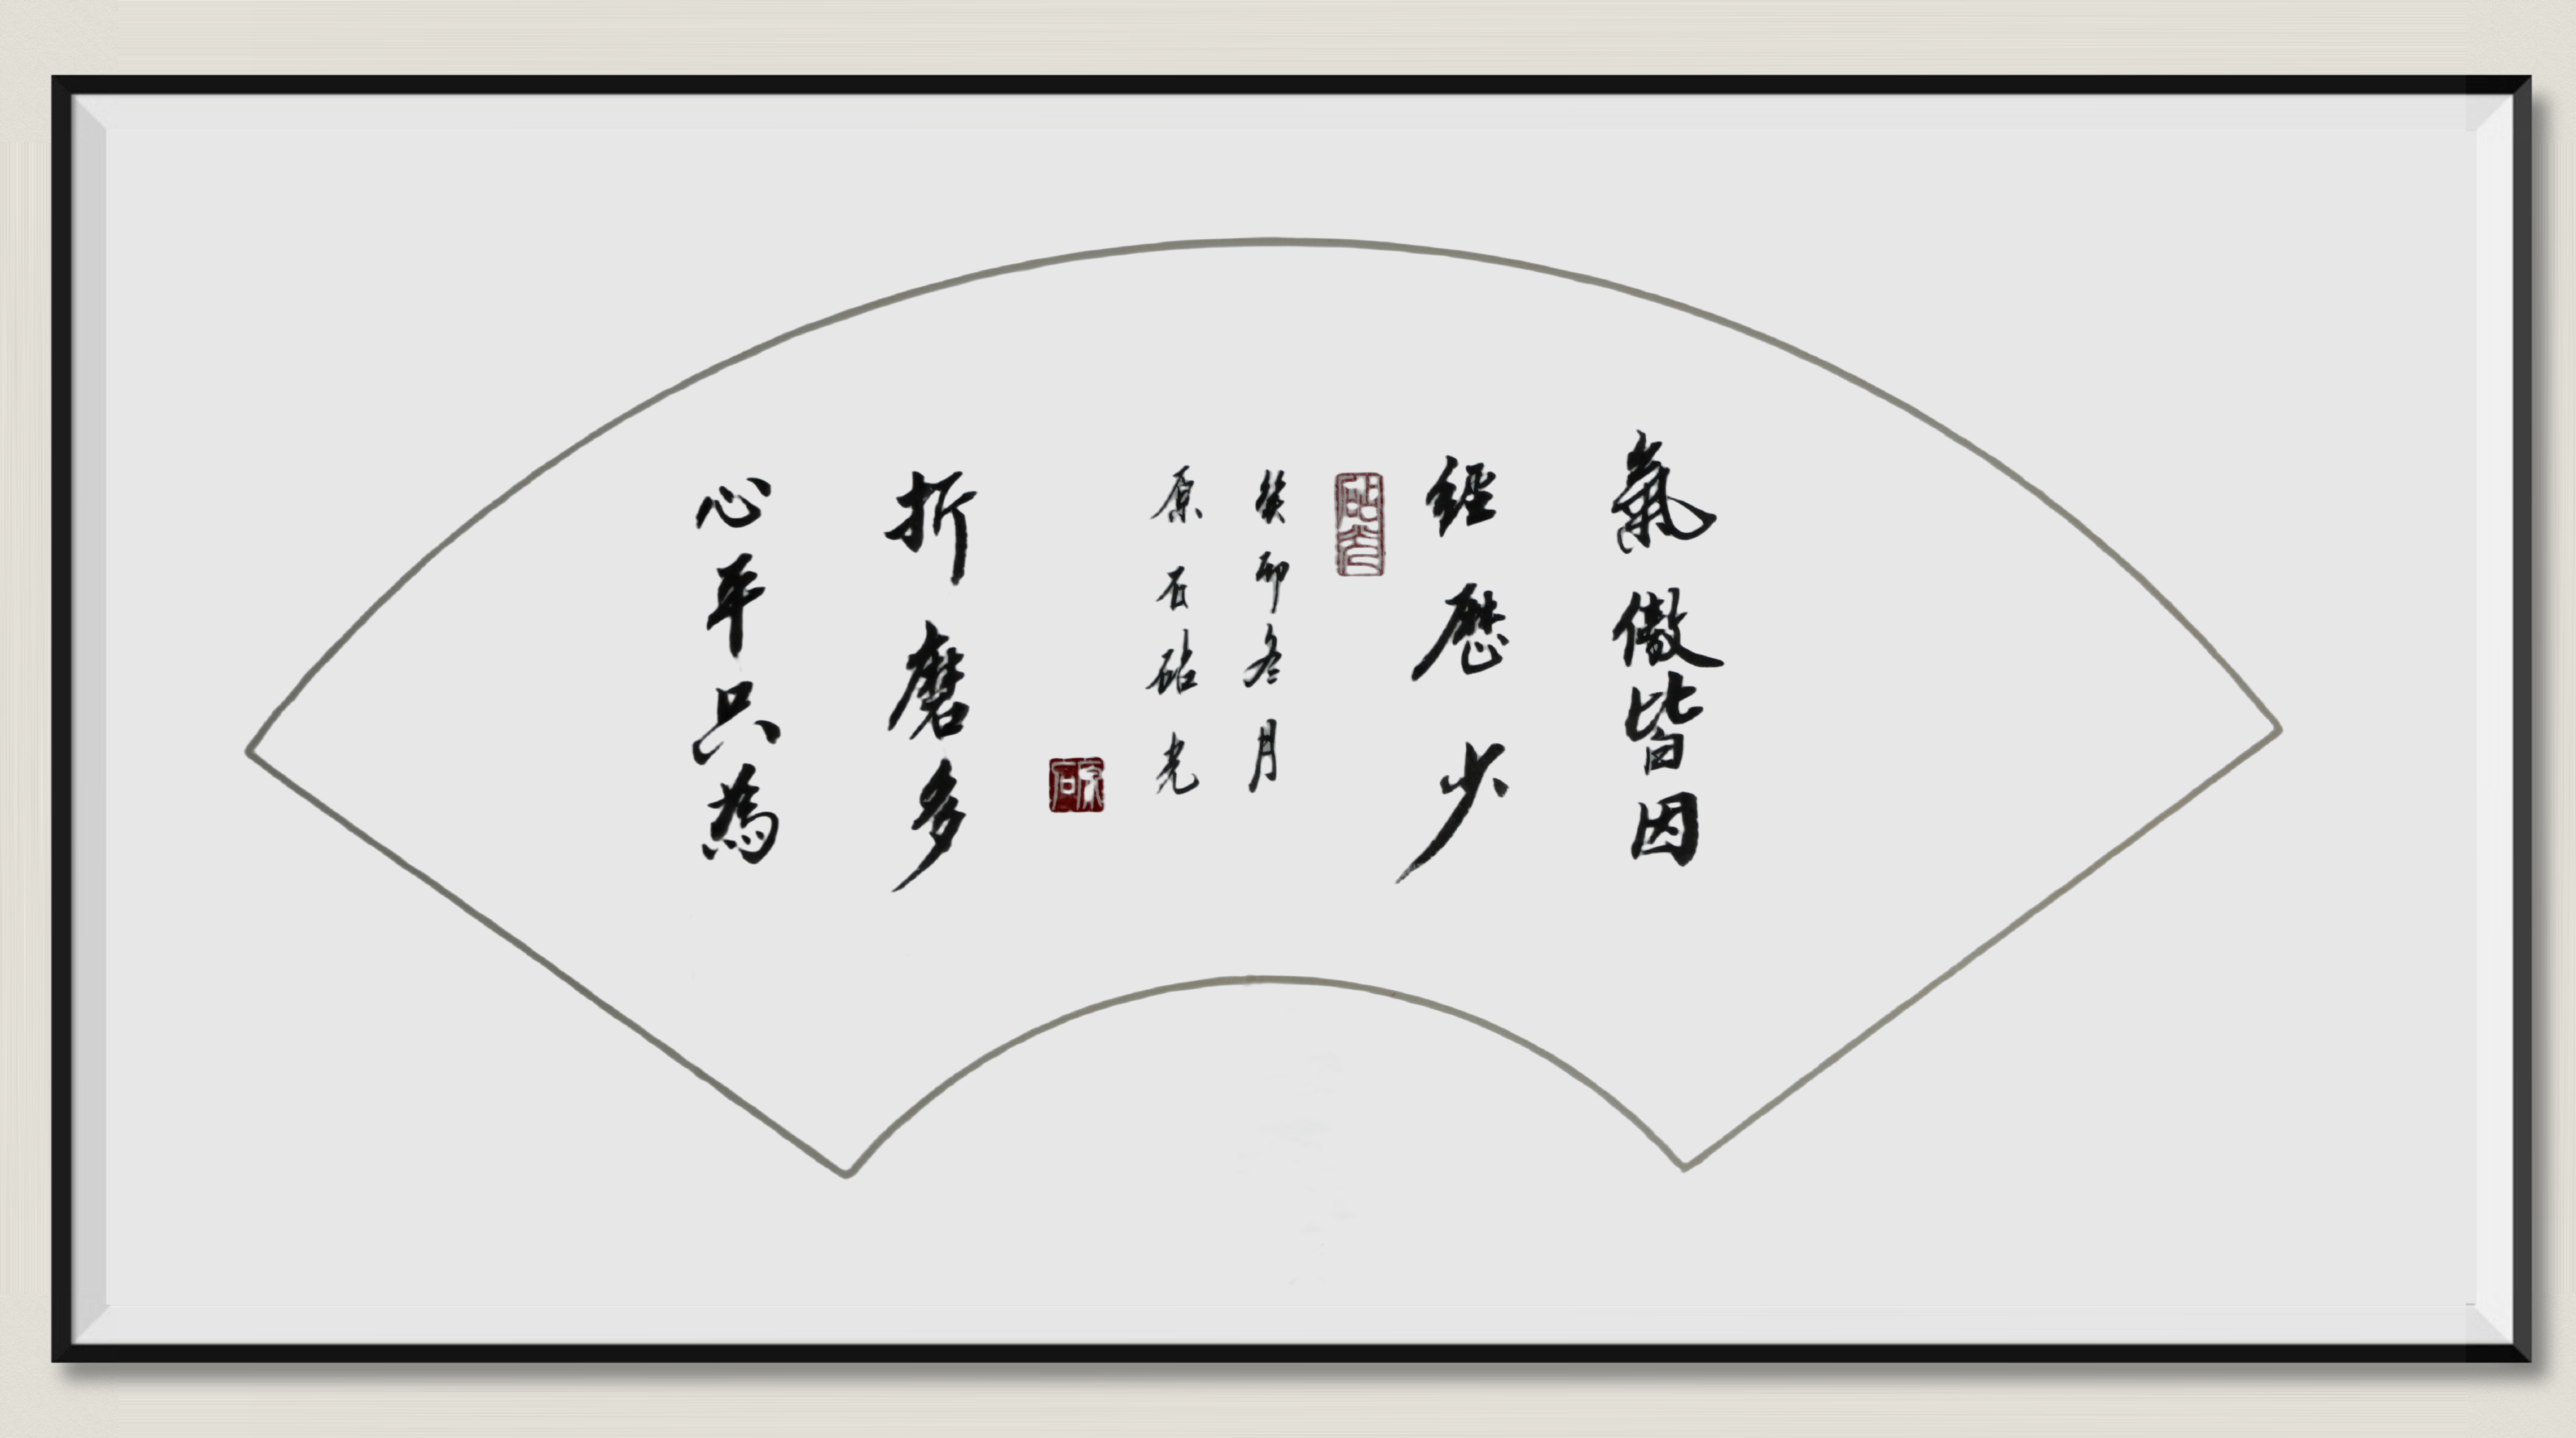 氣傲皆因
經歷少
心平只為
折磨多
癸卯冬月
原石砧光
砧光
原石